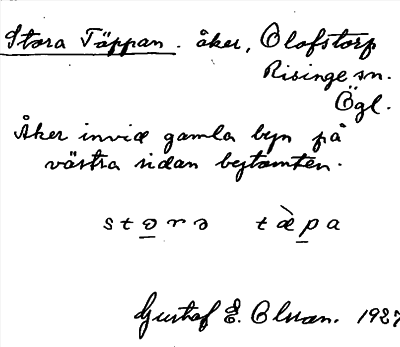 Stora Täppan. åker, Olofstorp
Risinge sn.
Ögl.
Åker invid gamla byn på
västra sidan bytomten.
stɵrə tæ̀pa
Gustaf E. Olsson. 1927